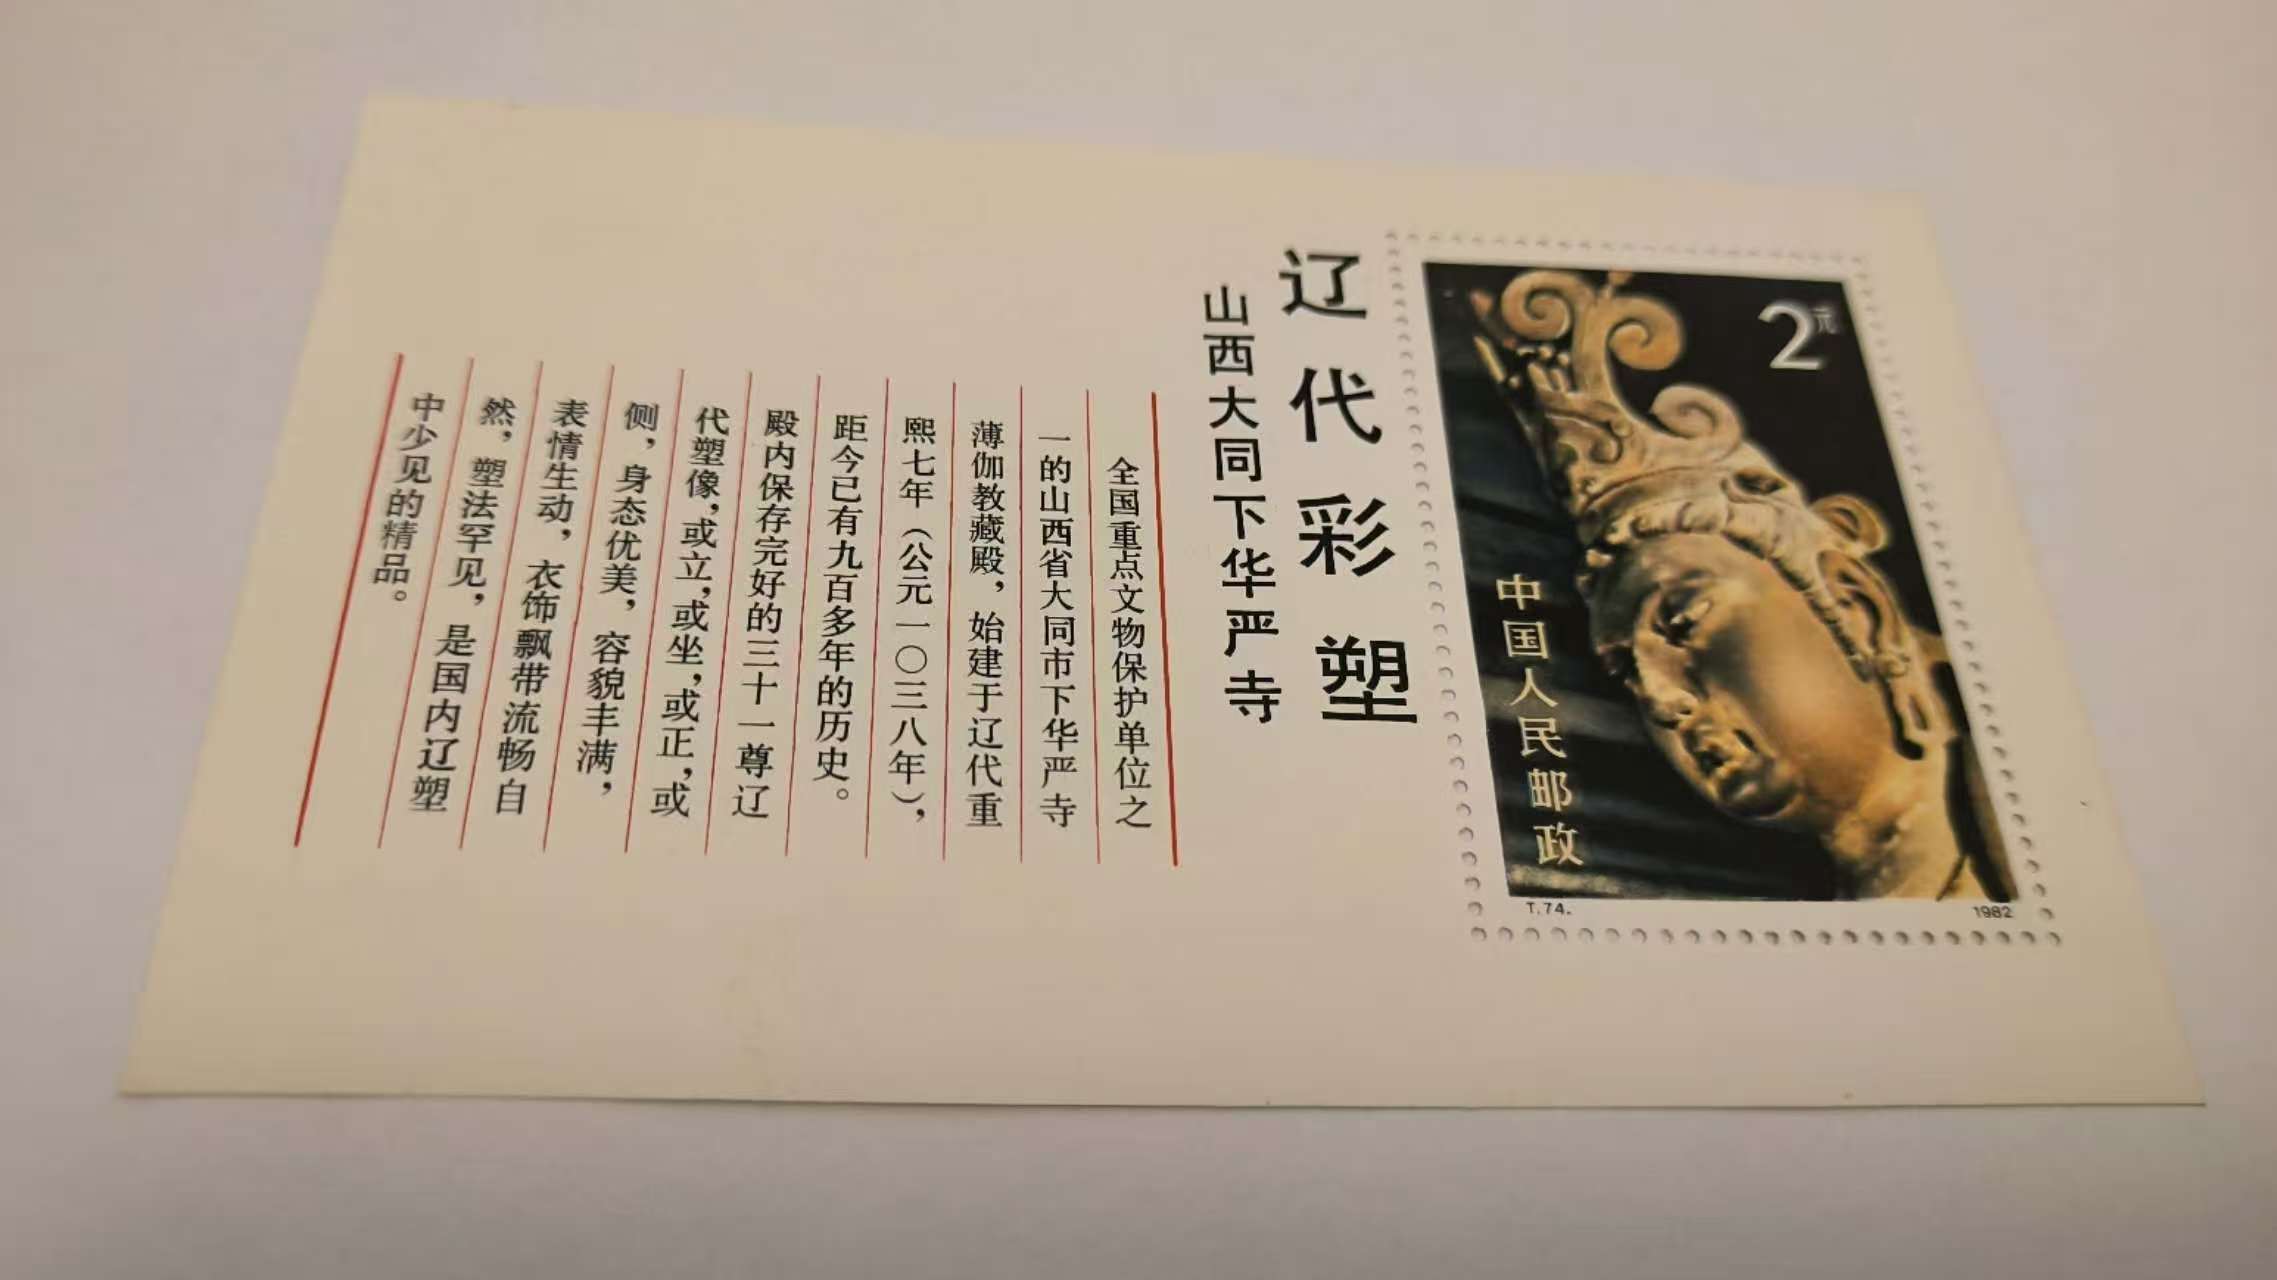 2元
中国人民邮政
T.74.
1982
辽代彩塑
山西大同下华严寺
全国重点文物保护单位之
一的山西省大同市下华严寺
薄伽教藏殿，始建于辽代重
熙七年（公元一〇三八年），
距今已有九百多年的历史。
殿内保存完好的三十一尊辽
代塑像，或立，或坐，或正，或
侧，身态优美，容貌丰满，
表情生动，衣饰飘带流畅自
然，塑法罕见，是国内辽塑
中少见的精品。